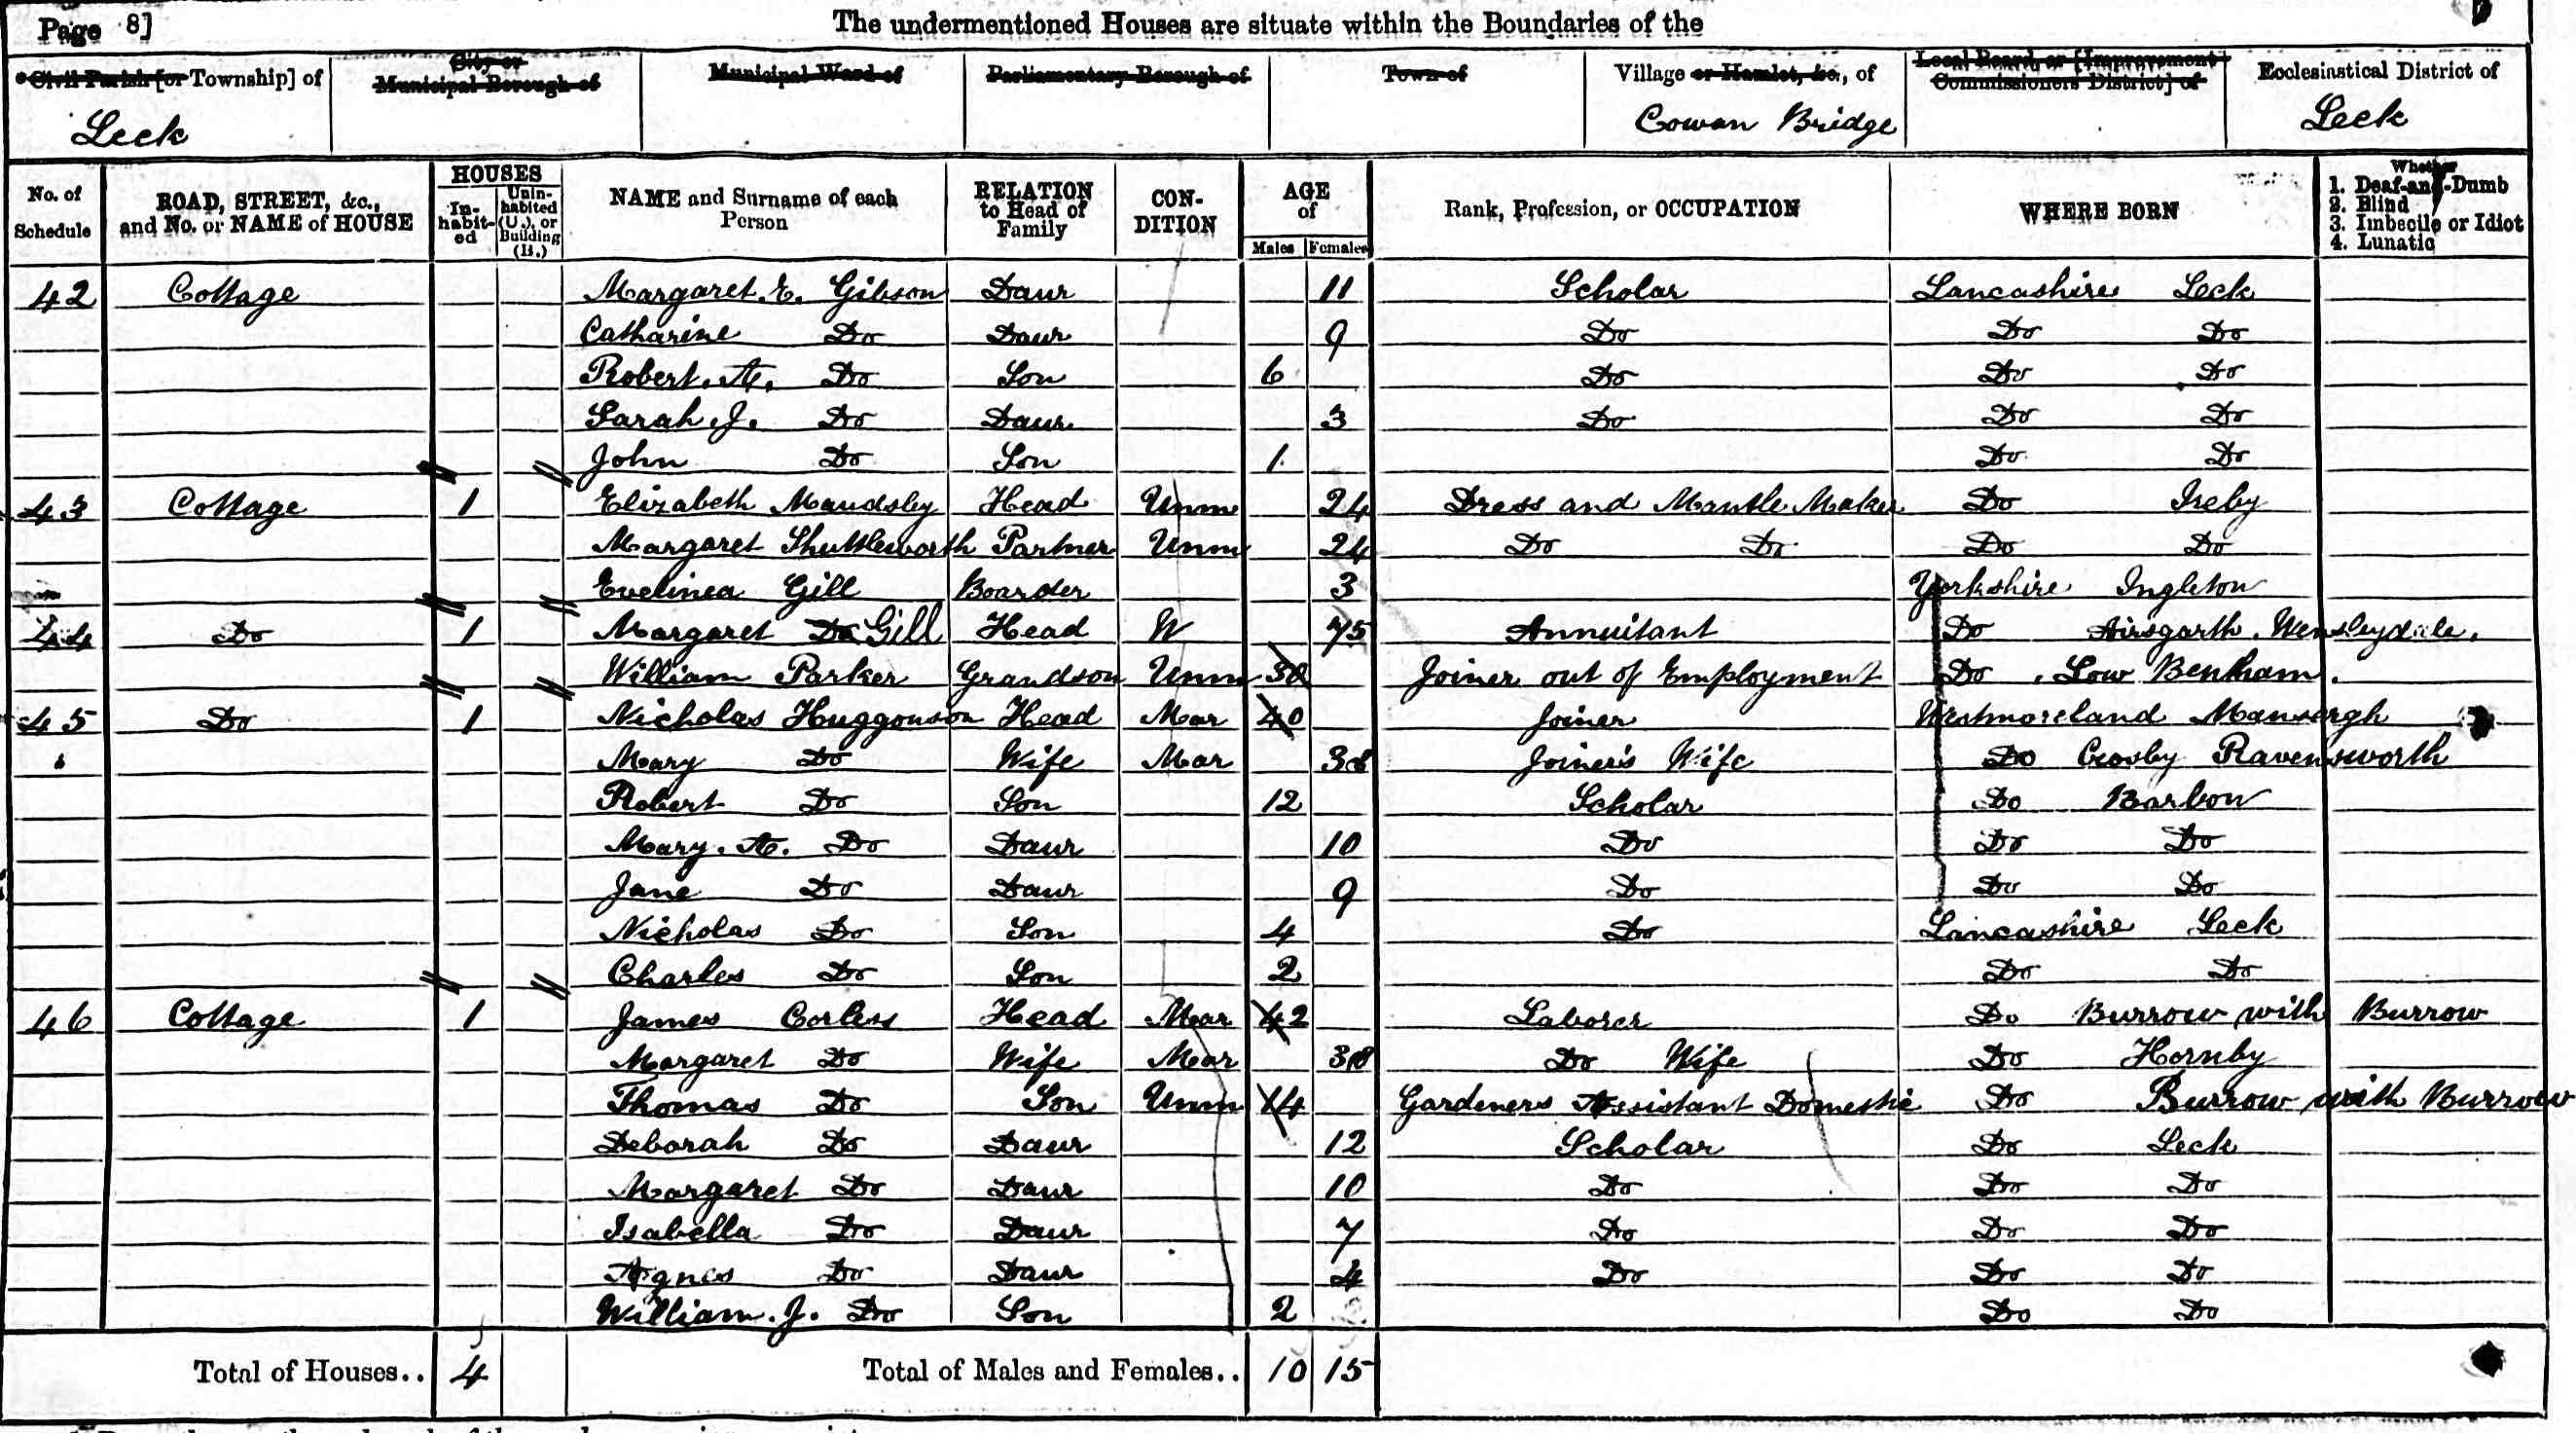 Page 8]
The undermentioned Houses are situate within the Boundaries of the
Civil Parish [or Township] of
City or Municipal Borough of
Municipal Ward of
Parliamentary Borough of
Town of
Village or Hamlet, &c., of
Local Board, or [Improvement Commissioners District] of
Ecclesiastical District of
Leck Cowan Bridge Leck
No. of Schedule
ROAD, STREET, &c., and No. or NAME of HOUSE
HOUSES
In-habit-ed
Unin-habited (U.), or Building (B.)
NAME and Surname of each Person
RELATION to Head of Family
CON-DITION
AGE of
Males Females
Rank, Profession, or OCCUPATION
WHERE BORN
Whether
1. Deaf-and-Dumb
2. Blind
3. Imbecile or Idiot
4. Lunatic
42 Cottage Margaret. E. Gibson Daur 11 Scholar Lancashire Leck
Catharine Do Daur 9 Do Do Do
Robert. A. Do Son 6 Do Do Do
Sarah. J. Do Daur 3 Do Do Do
John Do Son 1 Do Do
43 Cottage 1 Elizabeth Maudsley Head Unm 24 Dress and Mantle Maker Do Ireby
Margaret Shuttleworth Partner Unm 24 Do Do Do Do
Evelinea Gill Boarder 3 Yorkshire Ingleton
44 Do 1 Margaret Do Gill Head W 75 Annuitant Do Airsgarth. Wensleydale.
William Parker Grandson Unm 30 Joiner out of Employment Do . Low Bentham.
45 Do 1 Nicholas Huggonson Head Mar 40 Joiner Westmoreland Mansergh
Mary Do Wife Mar 38 Joiner's Wife Do Crosby Ravensworth
Robert Do Son 12 Scholar Do Barbon
Mary. A. Do Daur 10 Do Do Do
Jane Do Daur 9 Do Do Do
Nicholas Do Son 4 Do Lancashire Leck
Charles Do Son 2 Do Do
46 Cottage 1 James Corless Head Mar 42 Laborer Do Burrow with Burrow
Margaret Do Wife Mar 38 Do Wife Do Hornby
Thomas Do Son Unm 14 Gardeners Assistant Domestic Do Burrow with Burrow
Deborah Do Daur 12 Scholar Do Leck
Margaret Do Daur 10 Do Do Do
Isabella Do Daur 7 Do Do Do
Agnes Do Daur 4 Do Do Do
William. J. Do Son 2 Do Do
Total of Houses.. 4 Total of Males and Females.. 10 15